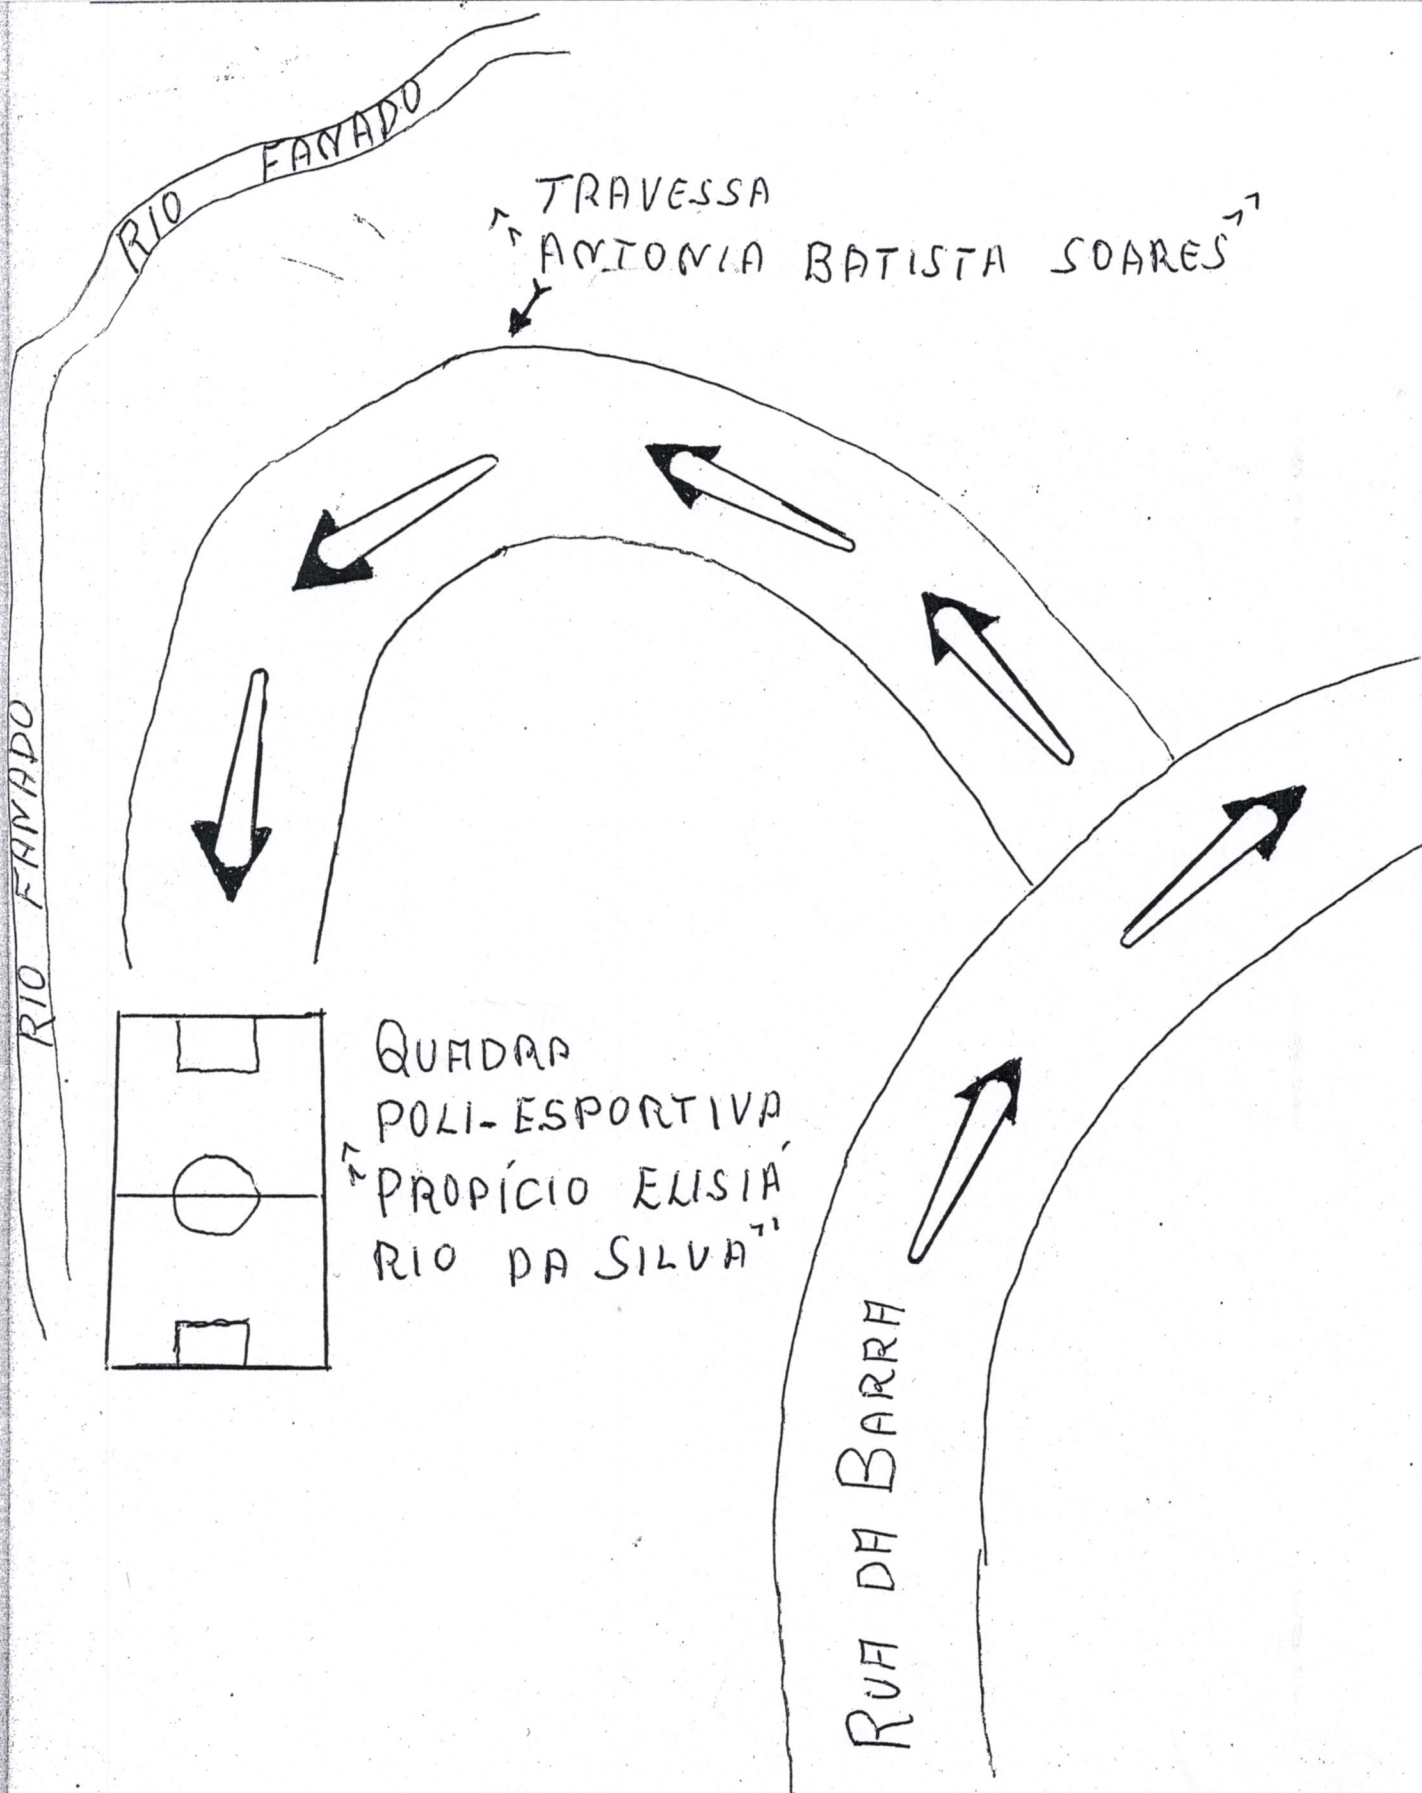 RIO FANADO
TRAVESSA
"ANTONIA BATISTA SOARES"
RIO FANADO
QUADRA
POLI-ESPORTIVA
"PROPÍCIO ELISIÁ
RIO DA SILVA"
RUA DA BARRA